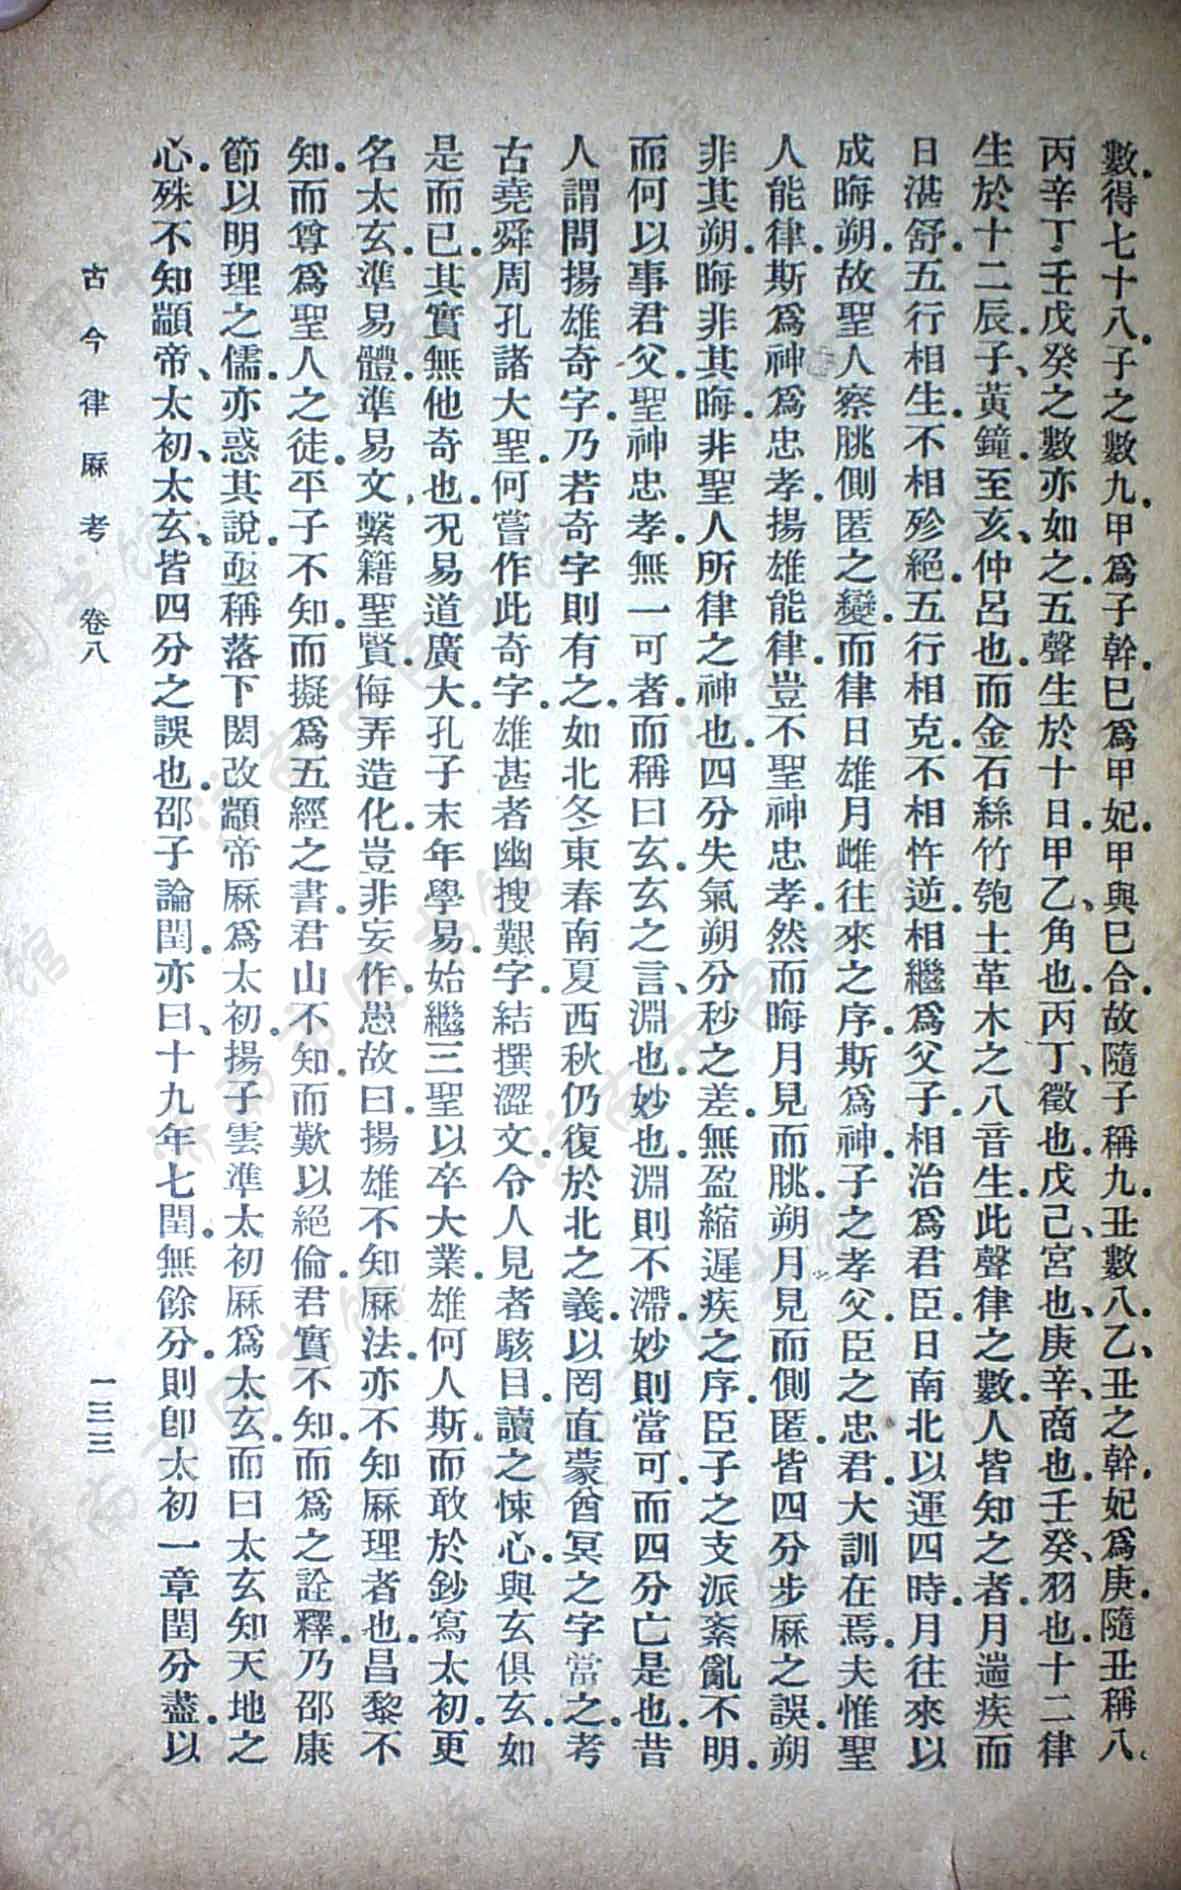 數得七十八子之數九甲爲子幹巳爲甲妃甲與巳合故隨子稱九丑數八乙丑之幹妃爲庚隨丑稱八
丙辛丁壬戊癸之數亦如之五聲生於十日甲乙角也丙丁徵也戊己宮也庚辛商也壬癸羽也十二律
生於十二辰子黃鐘至亥仲呂也而金石絲竹匏土革木之八音生此聲律之數人皆知之者月遄疾而
日湛舒五行相生不相殄絕五行相克不相忤逆相繼爲父子相治爲君臣日南北以運四時月往來以
成晦朔故聖人察朓側匿之變而律日雄月雌往來之序斯爲神子之孝父臣之忠君大訓在焉夫惟聖
人能律斯爲神爲忠孝揚雄能律豈不聖神忠孝然而晦月見而朓朔月見而側匿皆四分步厤之誤朔
非其朔晦非其晦非聖人所律之神也四分失氣朔分秒之差無盈縮遲疾之序臣子之支派紊亂不明
而何以事君父聖神忠孝無一可者而稱曰玄玄之言淵也妙也淵則不滯妙則當可而四分亡是也昔
人謂問揚雄奇字乃若奇字則有之如北冬東春南夏西秋仍復於北之義以罔直蒙酋冥之字當之考
古堯舜周孔諸大聖何嘗作此奇字雄甚者幽搜艱字結撰澀文令人見者駭目讀之悚心與玄俱玄如
是而已其實無他奇也況易道廣大孔子末年學易始繼三聖以卒大業雄何人斯而敢於鈔寫太初更
名太玄準易體準易文繫籍聖賢侮弄造化豈非妄作愚故曰揚雄不知厤法亦不知厤理者也昌黎不
知而尊爲聖人之徒平子不知而擬爲五經之書君山不知而歎以絕倫君實不知而爲之詮釋乃邵康
節以明理之儒亦惑其說亟稱落下閎改顓帝厤爲太初揚子雲準太初厤爲太玄而曰太玄知天地之
心殊不知顓帝太初太玄皆四分之誤也邵子論閏亦曰十九年七閏無餘分則卽太初一章閏分盡以
古今律厤考 卷八 一三三